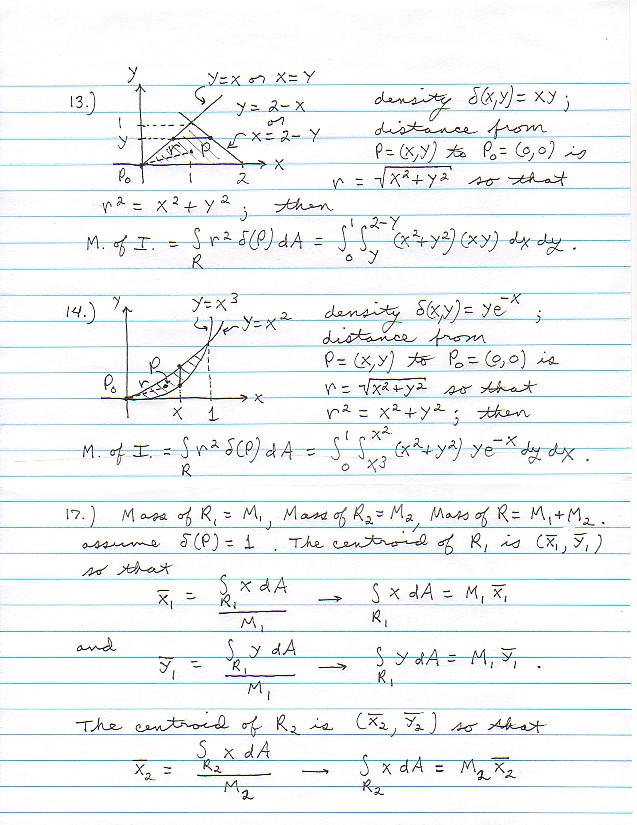 13.) y y=x or x=y
y=2-x
or
x=2-y
1
y
r P
P₀ 1 2 x
density δ(x,y)= xy ;
distance from
P=(x,y) to P₀=(0,0) is
r = √x²+y² so that
r² = x²+y² ; then
M. of I. = ∫_R r² δ(P) dA = ∫₀¹ ∫_y^{2-y} (x²+y²)(xy) dx dy .
14.) y y=x³
y=x²
P
P₀ r
x 1 x
density δ(x,y)= ye^{-x} ;
distance from
P=(x,y) to P₀=(0,0) is
r = √x²+y² so that
r² = x²+y² ; then
M. of I. = ∫_R r² δ(P) dA = ∫₀¹ ∫_{x³}^{x²} (x²+y²) ye^{-x} dy dx .
17.) Mass of R₁ = M₁, Mass of R₂ = M₂, Mass of R = M₁+M₂.
assume δ(P) = 1 . The centroid of R₁ is (x̄₁, ȳ₁)
so that
x̄₁ = ∫_{R₁} x dA / M₁ → ∫_{R₁} x dA = M₁ x̄₁
and
ȳ₁ = ∫_{R₁} y dA / M₁ → ∫_{R₁} y dA = M₁ ȳ₁ .
The centroid of R₂ is (x̄₂, ȳ₂) so that
x̄₂ = ∫_{R₂} x dA / M₂ → ∫_{R₂} x dA = M₂ x̄₂